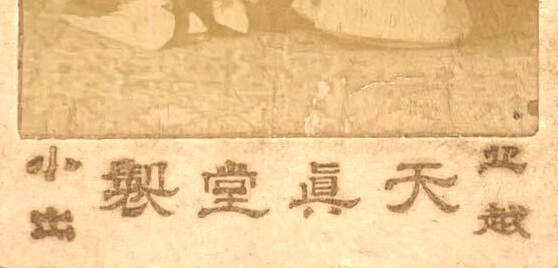 北越
天眞堂製
小出